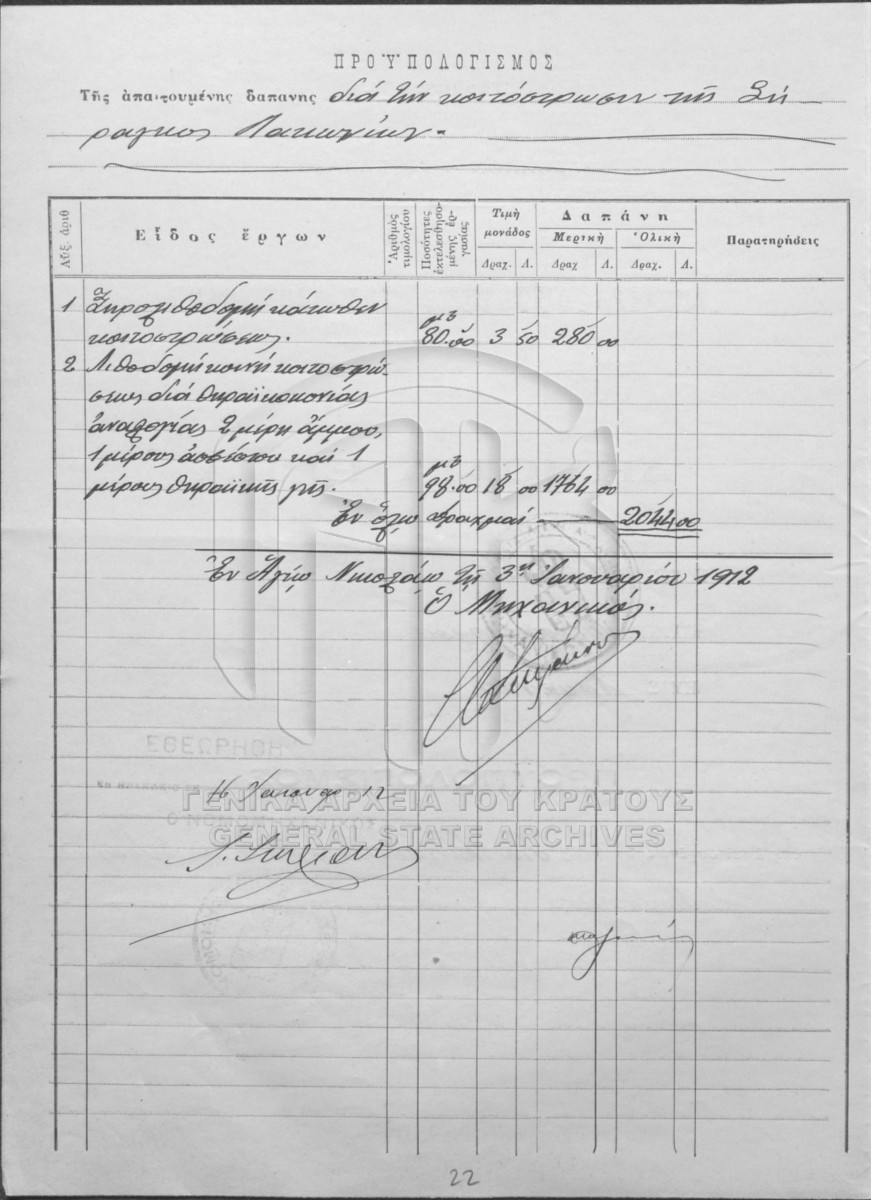 ΠΡΟΫΠΟΛΟΓΙΣΜΟΣ
Τῆς ἀπαιτουμένης δαπανης διά τήν κοιτόστρωσιν τῆς Σή
ραγγος Λακωνίων.-
Αὔξ. ἀριθ
Εἶδος ἔργων
Ἀριθμὸς τιμολογίου
Ποσότητες ἐκτελεσθησομένης ἐργασίας
Τιμὴ μονάδος
Δαπάνη
Μερικὴ
Ὁλικὴ
Παρατηρήσεις
Δραχ. Λ. Δραχ Λ. Δραχ. Λ.
1 Ξηρολιθοδομή κάτωθεν
κοιτοστρώσεως. μ3 80.00 3 50 280 00
2 Λιθοδομή κοινή κοιτοστρώ-
σεως διά θηραϊκοκονίας
ἀναλογίας 2 μέρη ἄμμου,
1 μέρους ἀσβέστου καί 1
μέρους θηραϊκῆς γῆς. μ3 98.00 18 00 1764 00
Ἐν ὅλῳ δραχμαί 2044 00
Ἐν Ἁγίῳ Νικολάῳ τῇ 3ῃ Ἰανουαρίου 1912
Ὁ Μηχανικός.
ΕΘΕΩΡΗΘΗ
16 Ἰανουαρ 12
ΓΕΝΙΚΑ ΑΡΧΕΙΑ ΤΟΥ ΚΡΑΤΟΥΣ
GENERAL STATE ARCHIVES
22